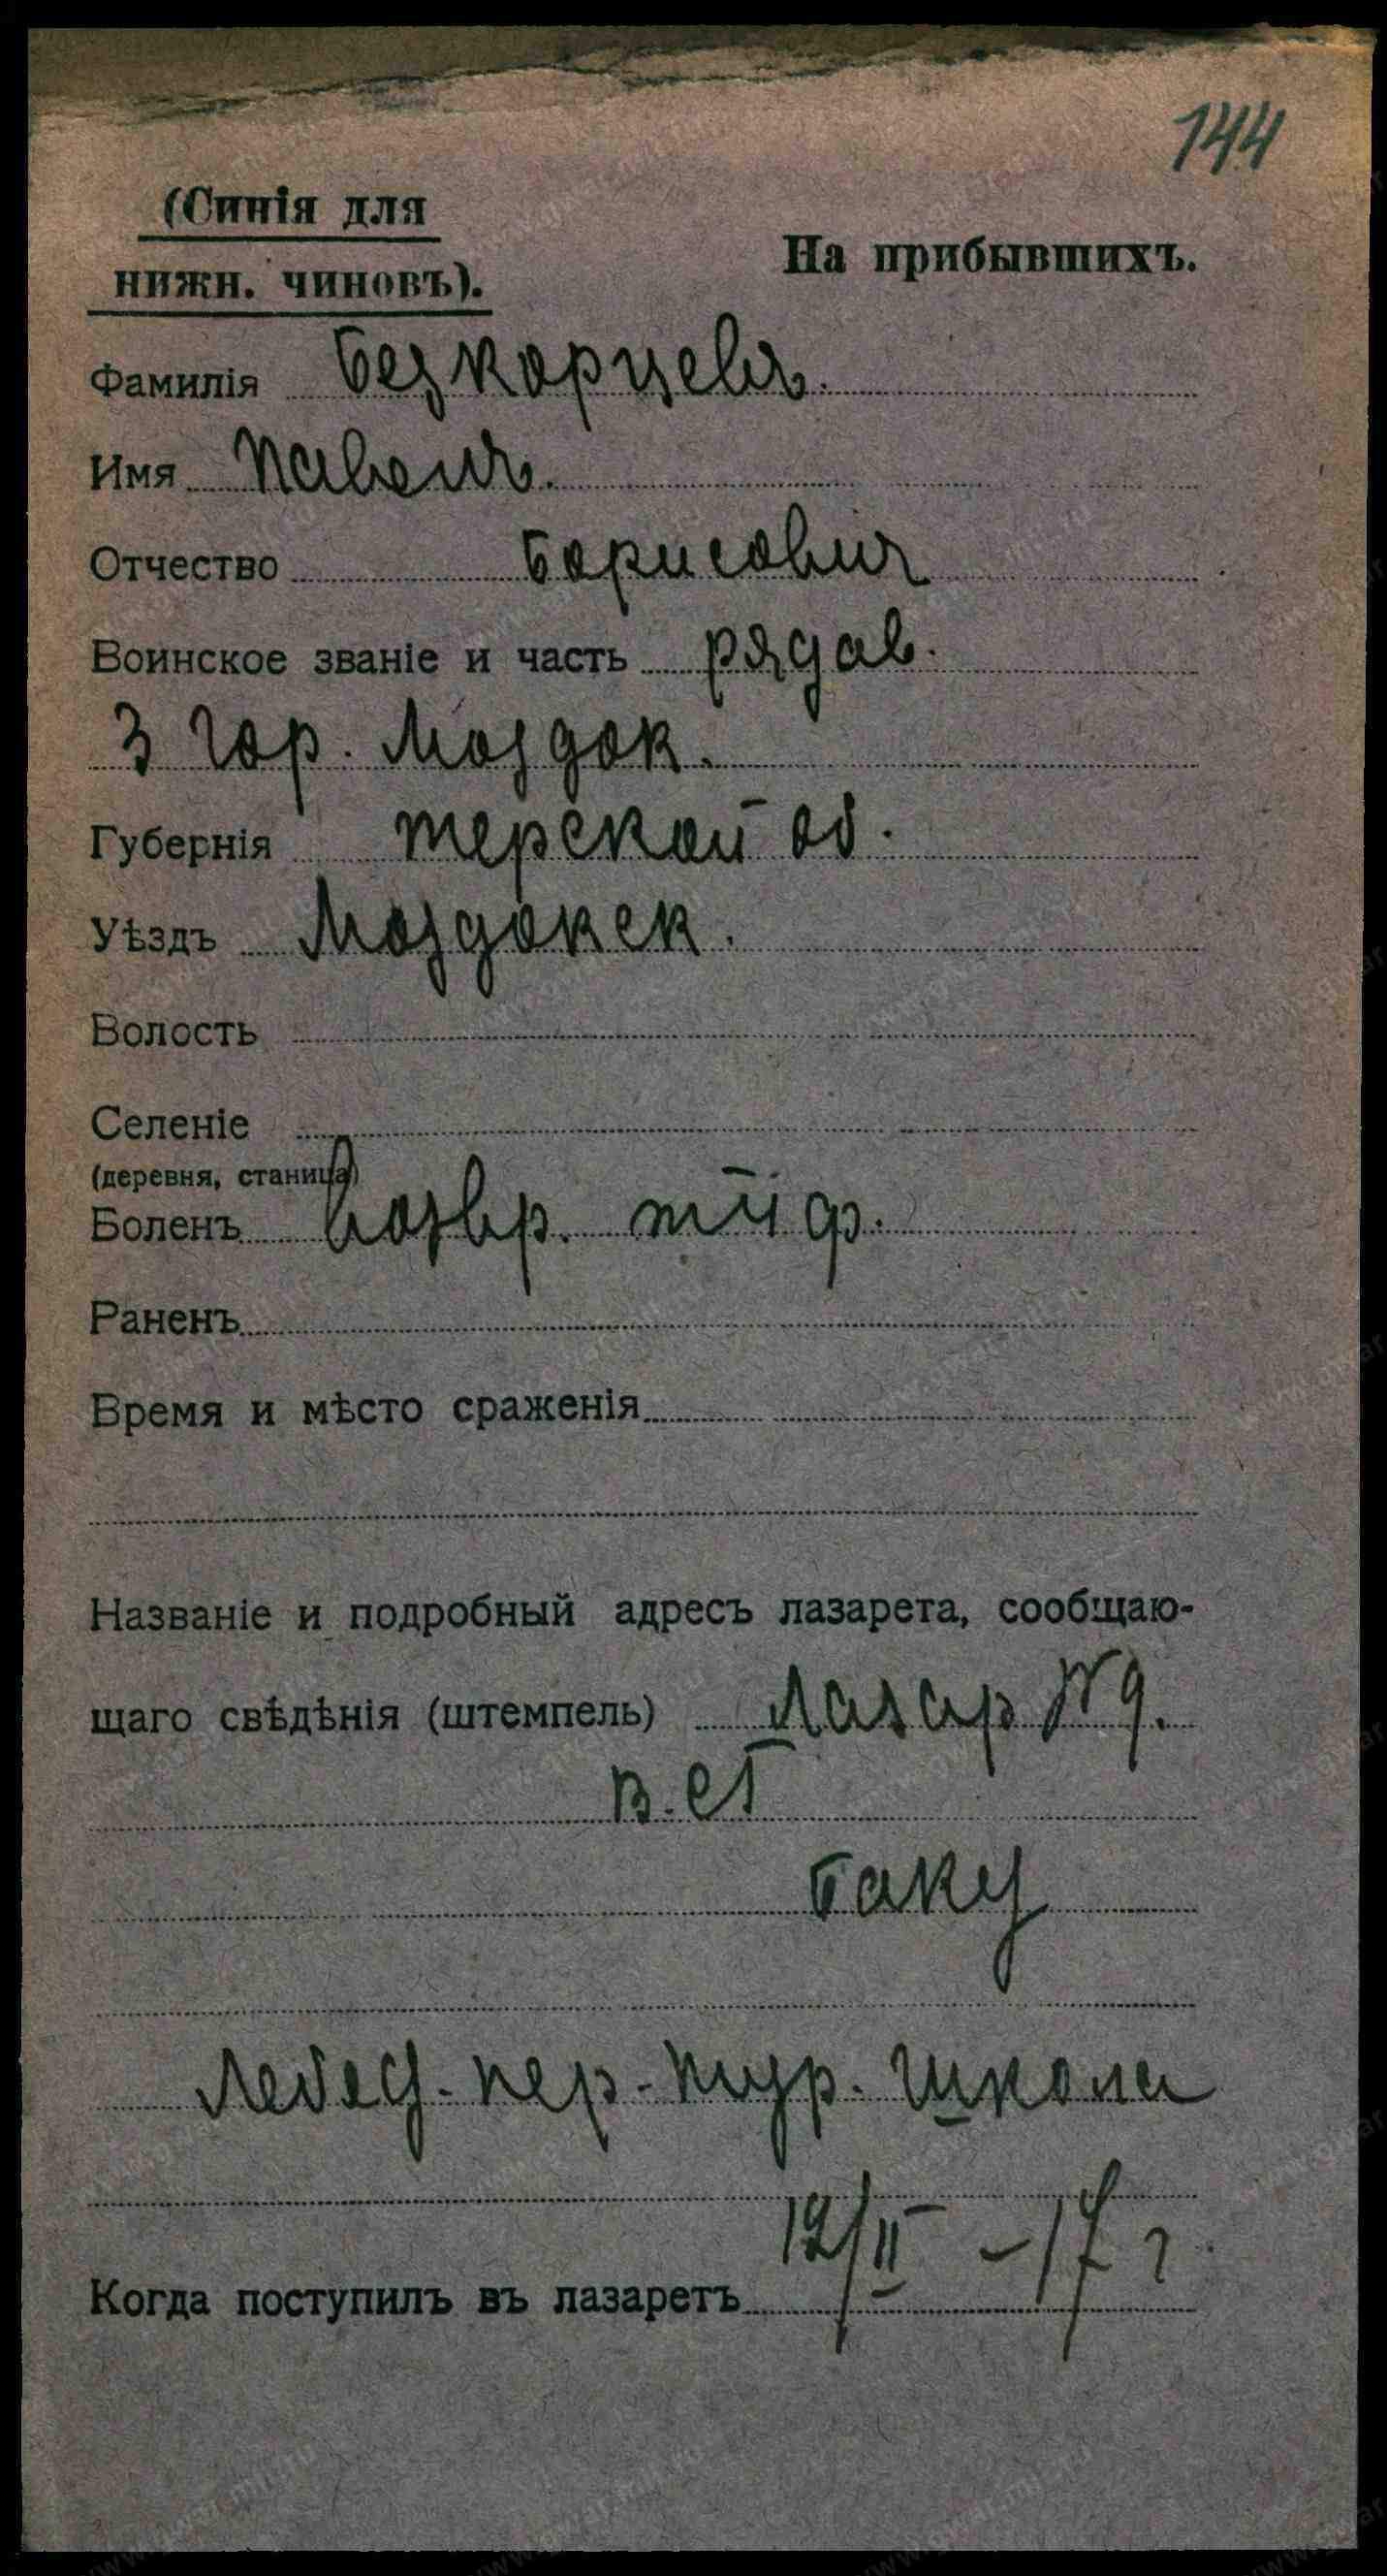 144
(Синія для
нижн. чиновъ).
На прибывшихъ.
Фамилія Безкорцевъ.
Имя Павелъ.
Отчество Борисович
Воинское званіе и часть рядав.
3 Гор. Моздок.
Губернія терской об.
Уѣздъ Моздокск.
Волость
Селеніе
(деревня, станица)
Боленъ Возвр. тиф.
Раненъ
Время и мѣсто сраженія
Названіе и подробный адресъ лазарета, сообщаю-
щаго свѣдѣнія (штемпель) Лазар № 9.
в. сг
Баку
пер- школа
Когда поступилъ въ лазаретъ 12/II - 17 г.